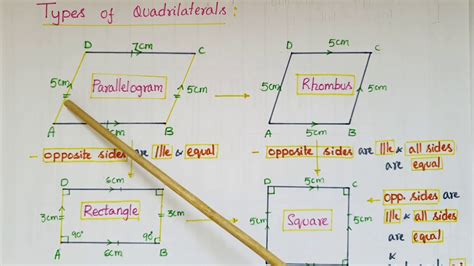 Types of Quadrilaterals :
D 7cm C
5cm Parallelogram 5cm
A B
D 5cm C
Rhombus 5cm
A B
- opposite sides are llle & equal
- opposite sides are llle & all sides are equal
D 6cm C
3cm Rectangle 3cm
90° 90°
A 6cm B
D C
5cm Square 5cm
- opp. sides are
llle & all sides
are equal